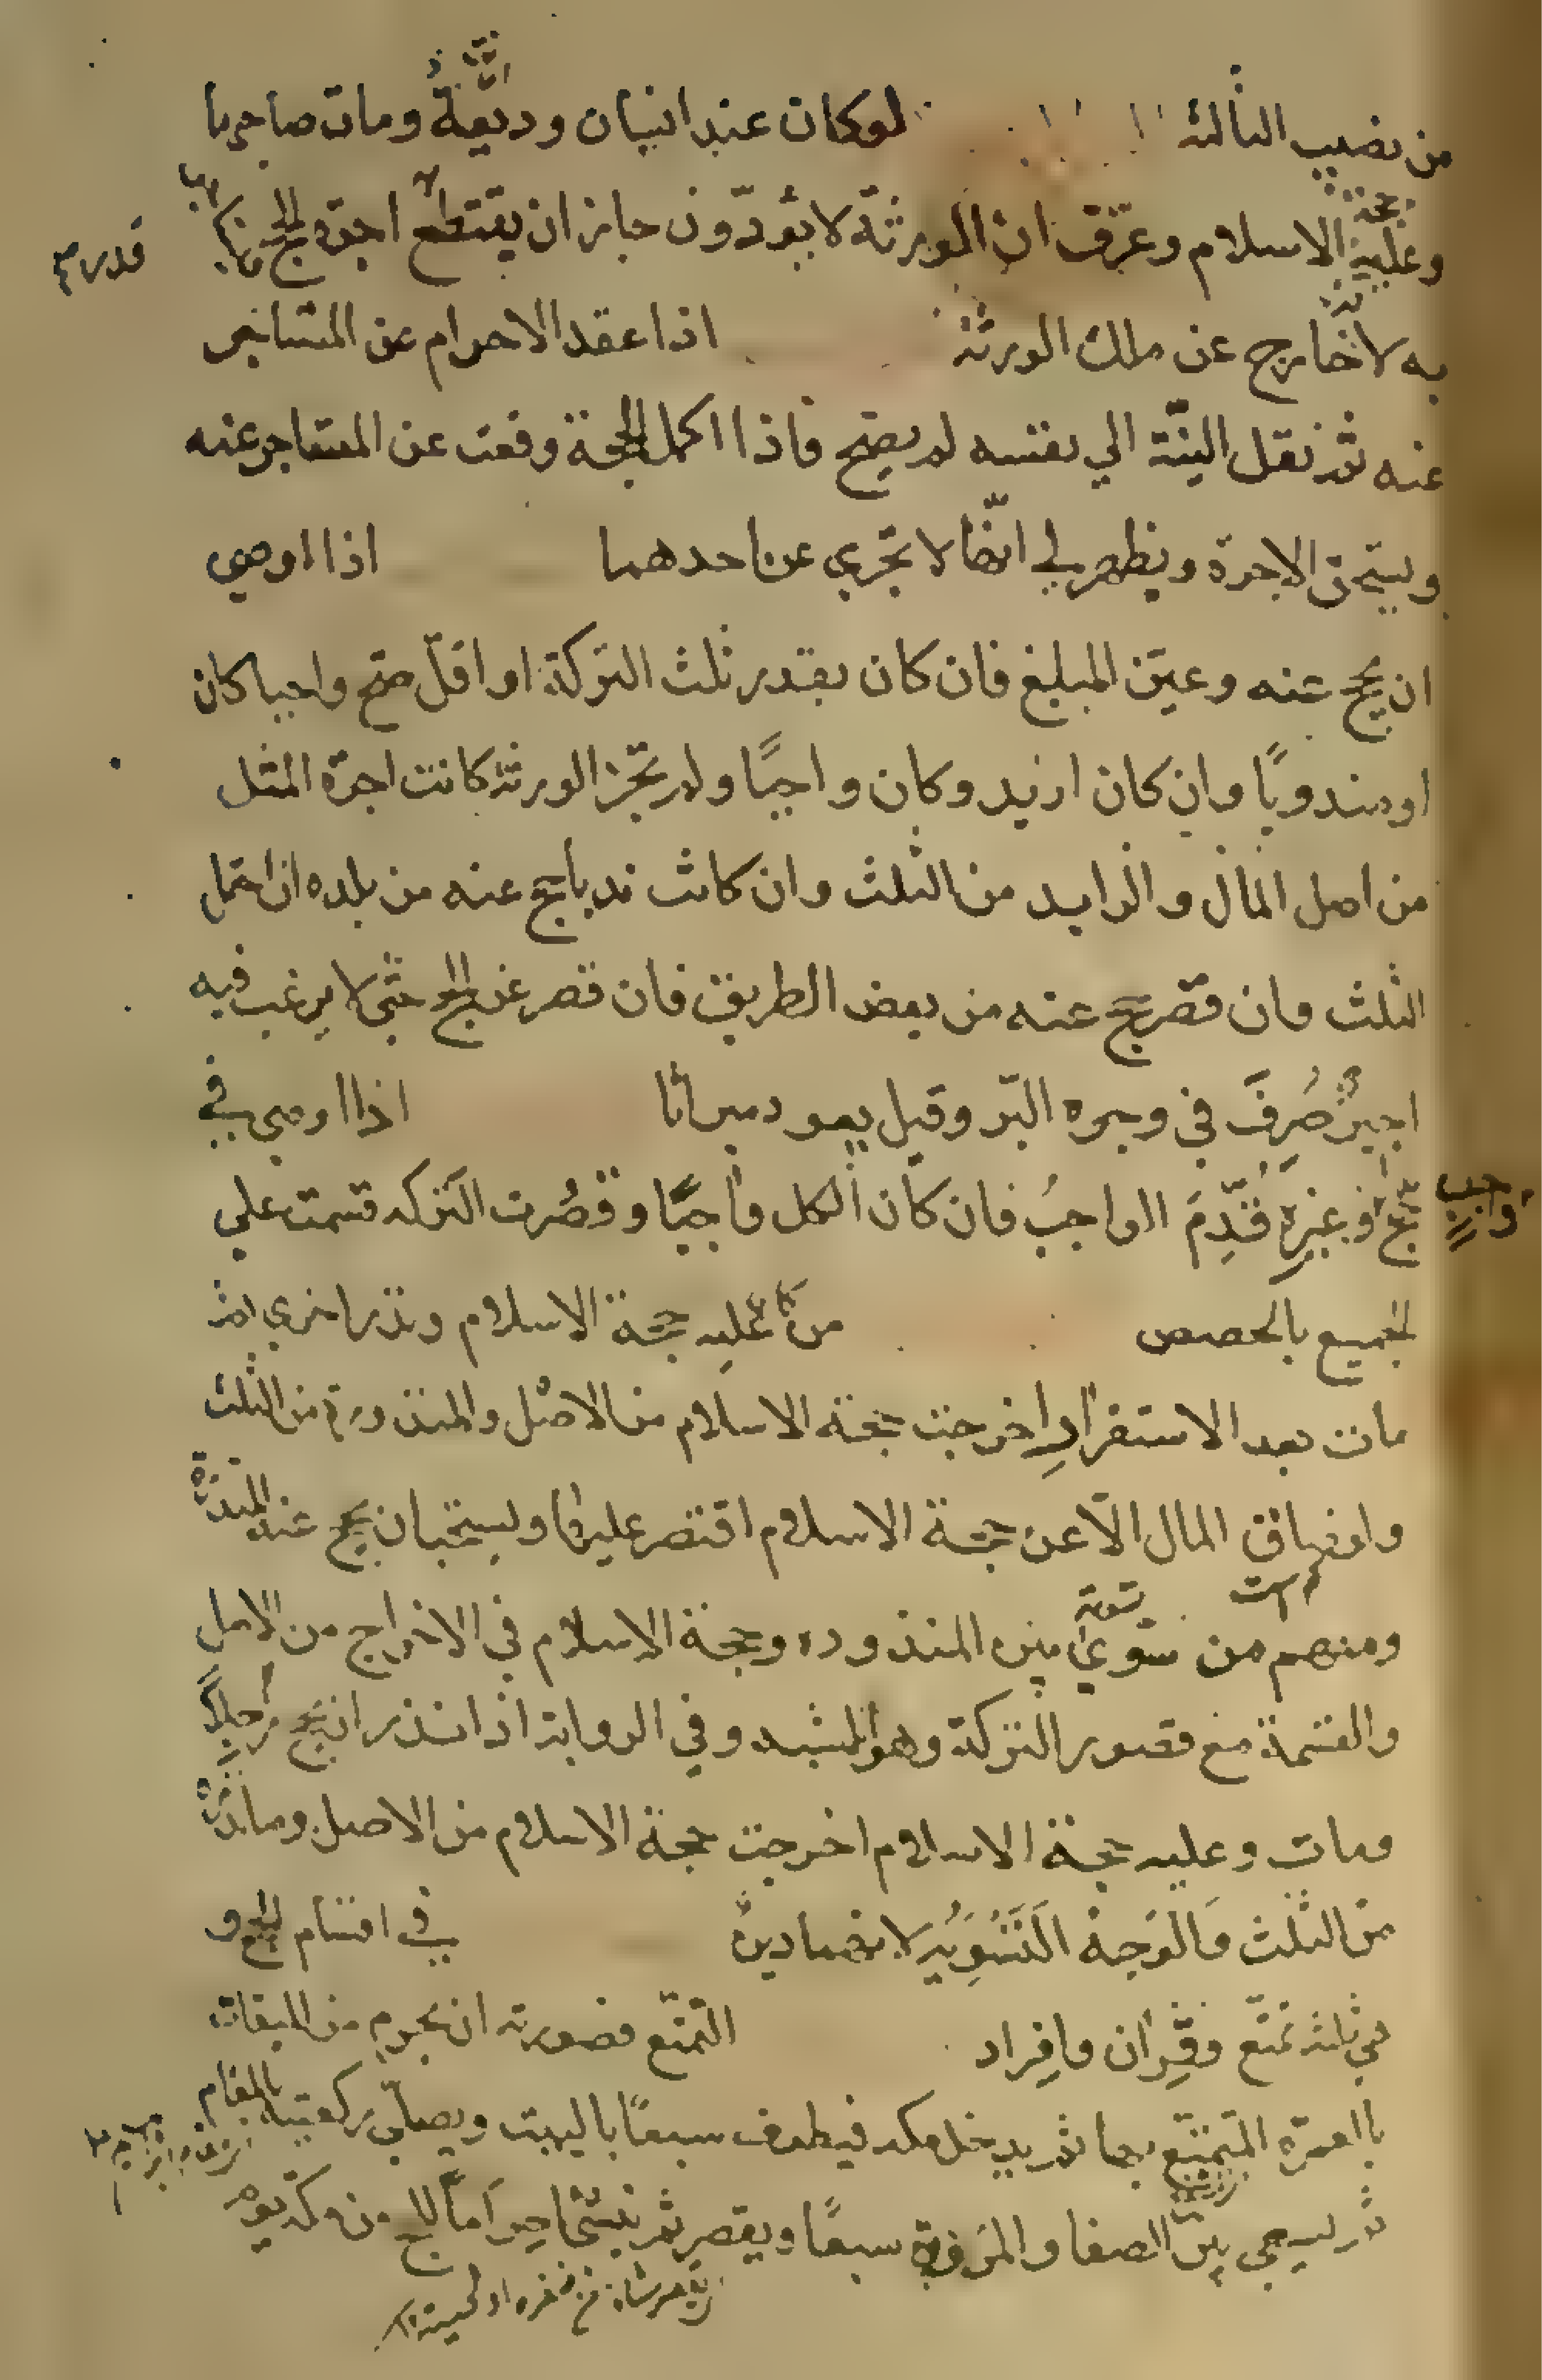 من نصيب الثالثة لو كان عند انسان وديعة ومات صاحبها
وعليه حجة الاسلام وعرف ان الورثة لا يؤدون جاز ان يقتطع اجرة الحج
قدر
به لانه خارج عن ملك الورثة اذا عقد الاحرام عن المستاجر
عنه ثم نقل النية الي نفسه لم يصح فاذا اكمل الحجة وقعت عن المستاجر عنه
ويستحق الاجرة ويظهر لي انها لا تجزي عن احدهما اذا اوصي
ان يحج عنه وعين المبلغ فان كان بقدر ثلث التركة او اقل صح واجبا كان
او مندوبًا وان كان ازيد وكان واجبًا ولم تجز الورثة كانت اجرة المثل
من اصل المال والزايد من الثلث وان كانت ندبا حج عنه من بلده ان احتمل
الثلث وان قصر حج عنه من بعض الطريق فان قصر عن الحج حتي لا يرغب فيه
اجيرٌ صُرِفَ في وجوه البر وقيل يعود ميراثا اذا اوصي في
حج واجب وغيرِه قُدِّمَ الواجبُ فان كان الكل واجبًا وقصُرت التركه قسمت علي
الجميع بالحصص من عليه حجة الاسلام ونذر اخري ثم
مات بعد الاستقرارِ اخرجت حجة الاسلام من الاصل والمنذورة من الثلث
ولو ضاق المال الّا عن حجة الاسلام اقتصر عليها ويستحب ان يحج عنه النذر
ومنهم من سوي بين المنذورة وحجة الاسلام في الاخراج من الاصل
تسوية
والقسمة مع قصور التركة وهو اشبه وفي الرواية اذا نذر ان يحج رجلًا
ومات وعليه حجة الاسلام اخرجت حجة الاسلام من الاصل وما نذره
من الثلث والوجهُ التسويه لانهما دين في اقسام الحج و
هي ثلثة تمتّع وقِران وافراد التمتّع فصورته ان يحرم من الميقات
بالعمرة المتمتع بها ثم يدخل مكه فيطوف سبعًا بالبيت ويصلّي ركعتيه بالمقام
ثم يسعي بين الصفا والمروة سبعًا ويقصر ثم ينشئ احرامًا للحج من مكة يوم